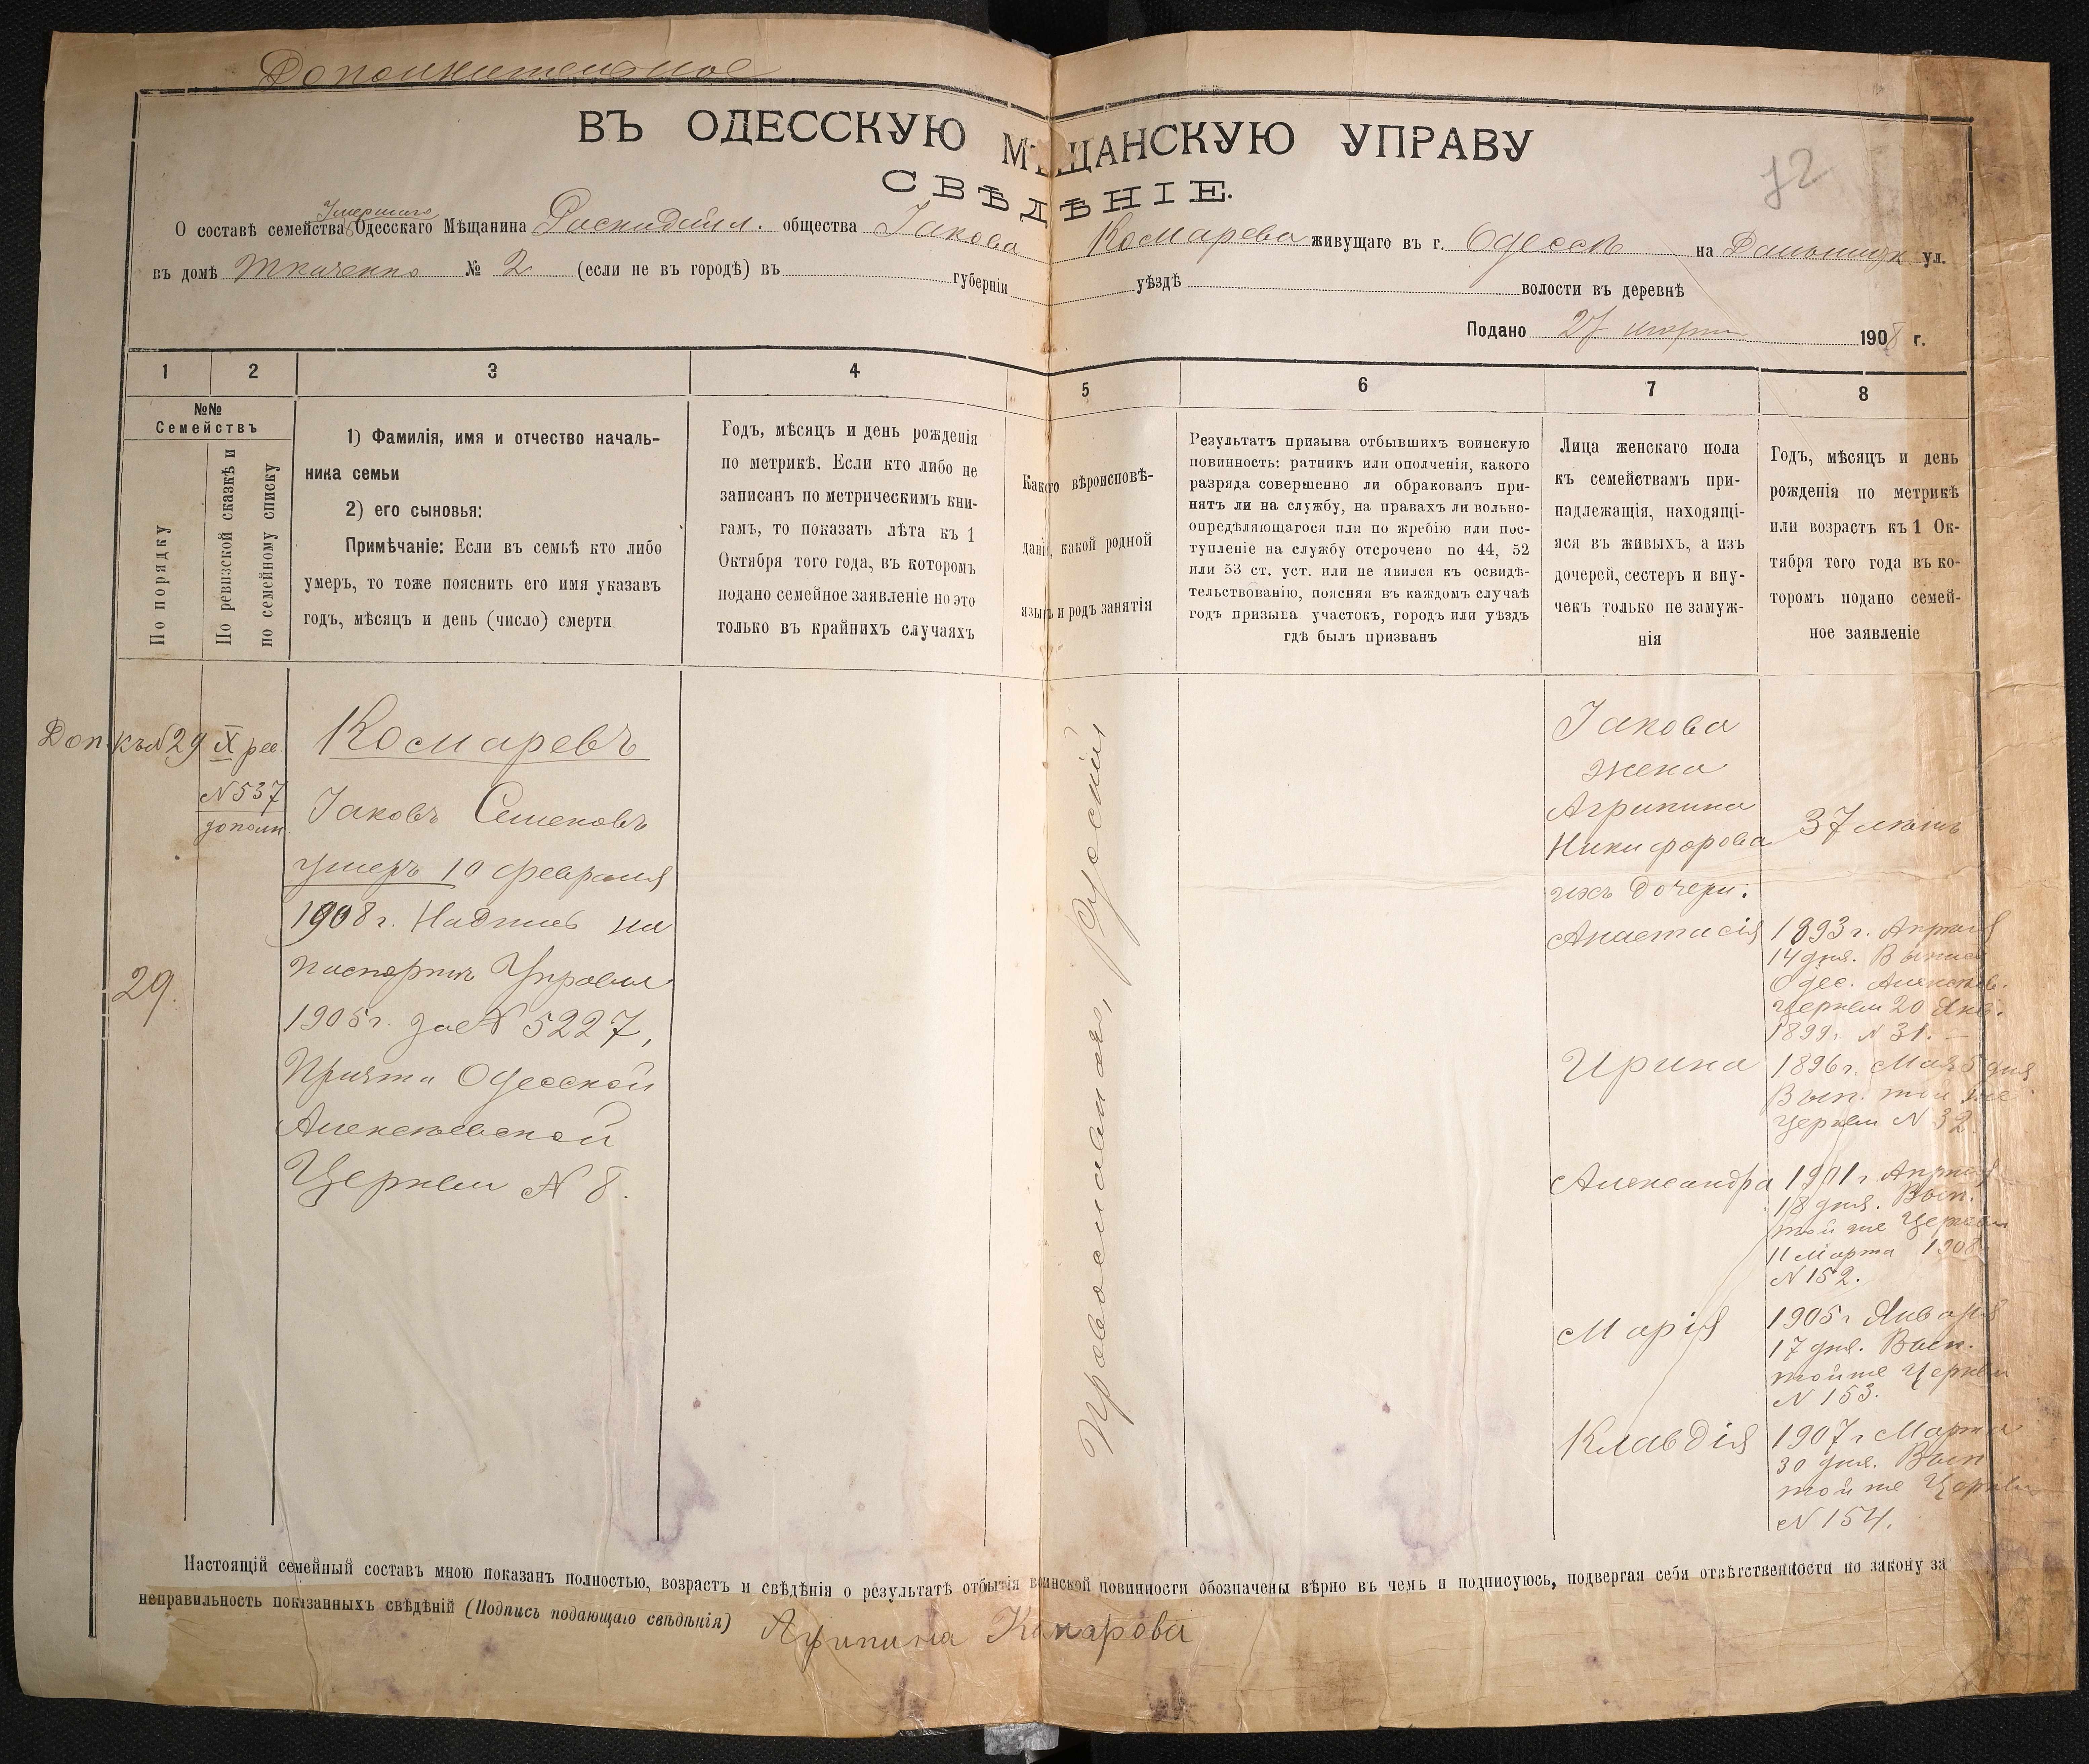 Дополнительное
ВЪ ОДЕССКУЮ МѢЩАНСКУЮ УПРАВУ
72
СВѢДѢНІЕ.
Умершаго
О составѣ семейства Одесскаго Мѣщанина Раскидайл. общества Іакова Комарева живущаго въ г. Одессѣ на Дальницк. ул.
въ домѣ Ткаченко № 2 (если не въ городѣ) въ губерніи уѣздѣ волости въ деревнѣ
Подано 27 марта 1908 г.
1 2 3 4 5 6 7 8
№№
Семействъ
По порядку
По ревизской сказкѣ и
по семейному списку
1) Фамилія, имя и отчество началь-
ника семьи
2) его сыновья:
Примѣчаніе: Если въ семьѣ кто либо
умеръ, то тоже пояснить его имя указавъ
годъ, мѣсяцъ и день (число) смерти.
Годъ, мѣсяцъ и день рожденія
по метрикѣ. Если кто либо не
записанъ по метрическимъ кни-
гамъ, то показать лѣта къ 1
Октября того года, въ которомъ
подано семейное заявленіе но это
только въ крайнихъ случаяхъ
Какого вѣроисповѣ-
данія, какой родной
языкъ и родъ занятія
Результатъ призыва отбывшихъ воинскую
повинность: ратникъ или ополченія, какого
разряда совершенно ли обракованъ при-
нятъ ли на службу, на правахъ ли вольно-
опредѣляющагося или по жребію или пос-
тупленіе на службу отсрочено по 44, 52
или 53 ст. уст. или не явился къ освидѣ-
тельствованію, поясняя въ каждомъ случаѣ
годъ призыва участокъ, городъ или уѣздъ
гдѣ былъ призванъ
Лица женскаго пола
къ семействамъ при-
надлежащія, находящі-
яся въ живыхъ, а изъ
дочерей, сестеръ и вну-
чекъ только не замуж-
нія
Годъ, мѣсяцъ и день
рожденія по метрикѣ
или возрастъ къ 1 Ок-
тября того года въ ко-
торомъ подано семей-
ное заявленіе
Доп. къ № 29
29.
X рев.
№ 537
дополн.
Комаревъ
Іаковъ Семеновъ
умеръ 10 февраля
1908 г. Надпись на
паспортѣ Управы
1905 г. за № 5227,
Причта Одесской
Алексѣевской
Церкви № 8.
Православная, Русскій
Іакова
жена
Агрипина
Никифорова
37 лѣтъ
ихъ дочери:
Анастасія
1893 г. Апрѣля
14 дня. Выпись
Одес. Алексѣев.
Церкви 20 Янв.
1899 г. № 31. —
Ирина
1896 г. Мая 5 дня
Вып. той же
Церкви № 32.
Александра
1901 г. Апрѣля
18 дня. Вып.
той же Церкви
11 Марта 1908
№ 152.
Марія
1905 г. Января
17 дня. Вып.
той же Церкви
№ 153.
Клавдія
1907 г. Марта
30 дня. Вып
той же Церкви
№ 154.
Настоящій семейный составъ мною показанъ полностью, возрастъ и свѣдѣнія о результатѣ отбытія воинской повинности обозначены вѣрно въ чемъ и подписуюсь, подвергая себя отвѣтственности по закону за
неправильность показанныхъ свѣдѣній (Подпись подающаго свѣдѣнія) Агрипина Комарова